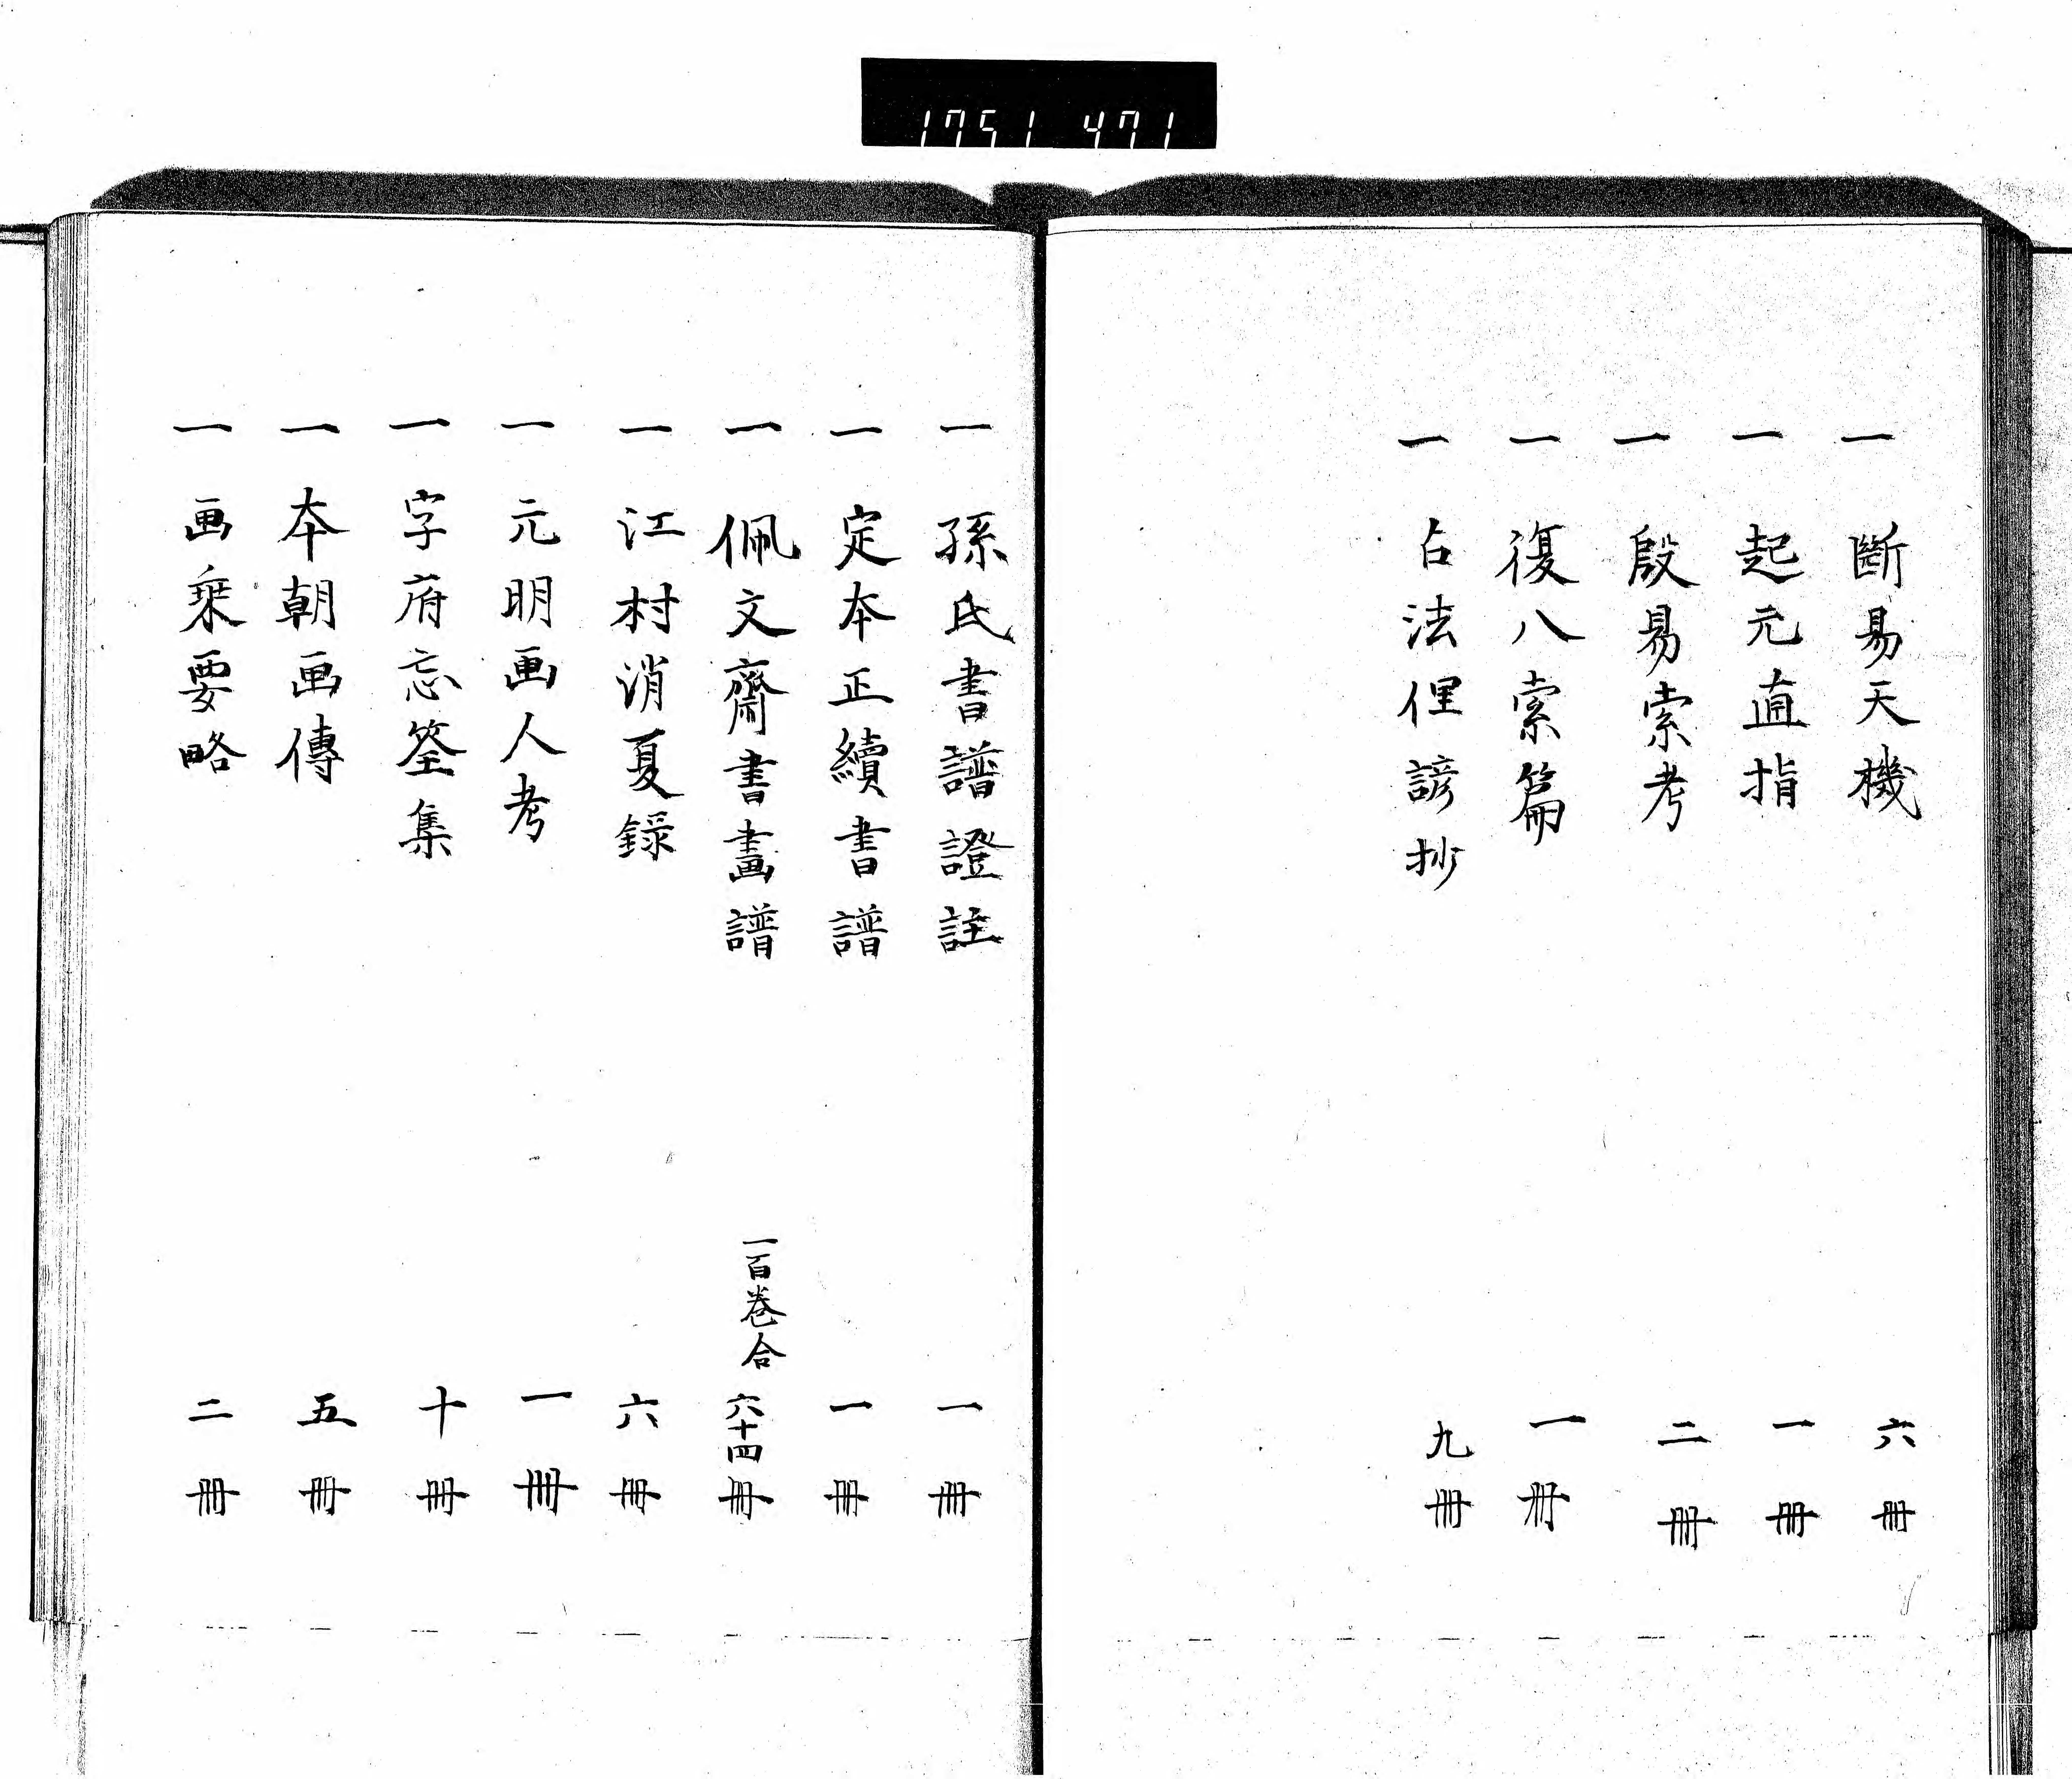 1751 471
一 斷易天機 六冊
一 起元直指 一冊
一 殷易索考 二冊
一 復八索篇 一冊
一 占法俚諺抄 九冊
一 孫氏書譜證註 一冊
一 定本正續書譜 一冊
一 佩文齋書畫譜 一百巻合六十四冊
一 江村消夏録 六冊
一 元明画人考 一冊
一 字府忘筌集 十冊
一 本朝画傳 五冊
一 画乗要略 二冊